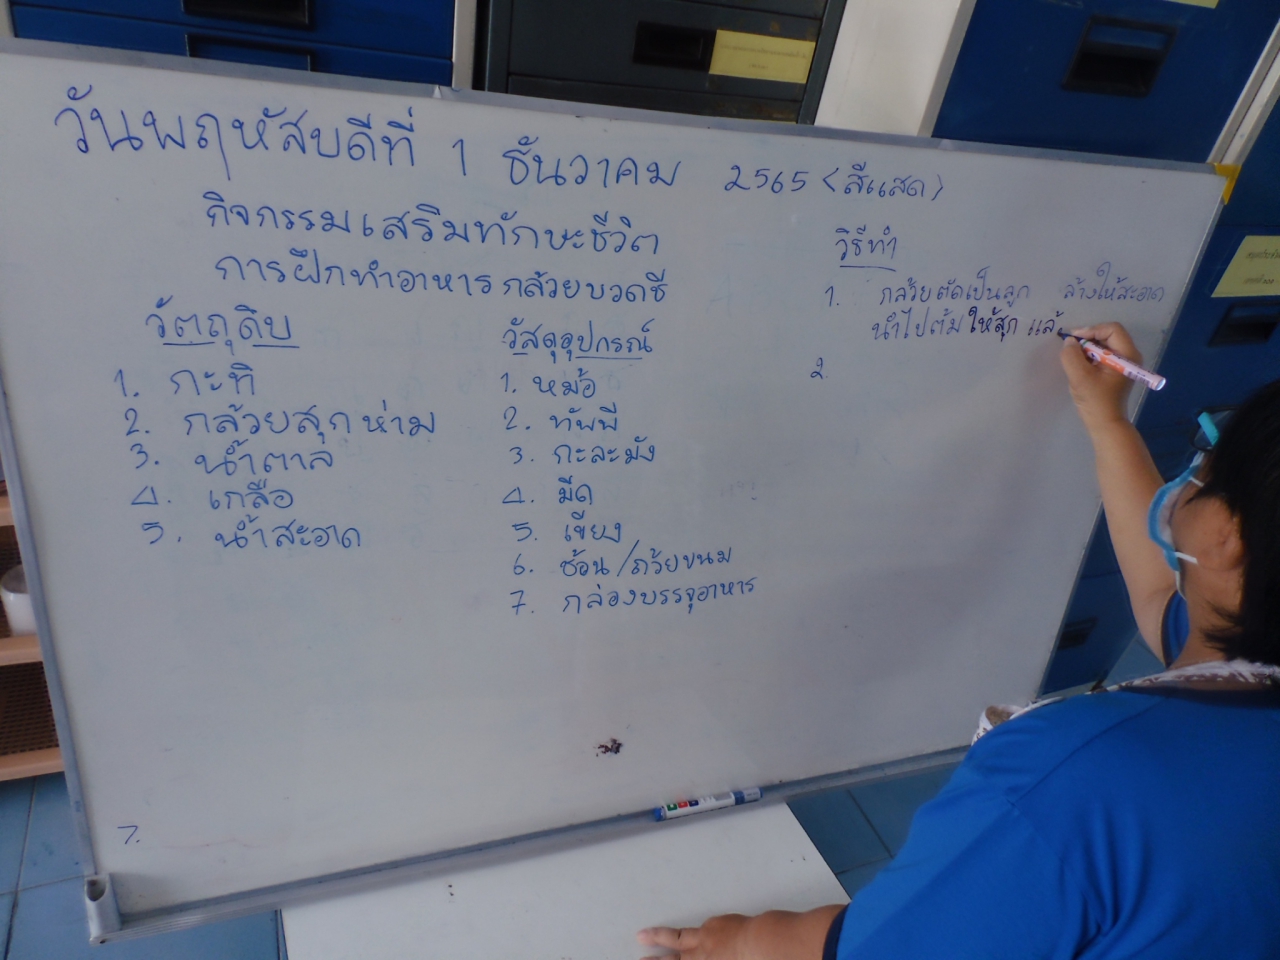 วันพฤหัสบดีที่ 1 ธันวาคม 2565 (สีแสด)
กิจกรรมเสริมทักษะชีวิต
การฝึกทำอาหาร กล้วยบวดชี
วัตถุดิบ
1. กะทิ
2. กล้วยสุกห่าม
3. น้ำตาล
4. เกลือ
5. น้ำสะอาด
วัสดุอุปกรณ์
1. หม้อ
2. ทัพพี
3. กะละมัง
4. มีด
5. เขียง
6. ช้อน/ถ้วยขนม
7. กล่องบรรจุอาหาร
วิธีทำ
1. กล้วยตัดเป็นลูก ล้างให้สะอาด
นำไปต้มให้สุก แล้
2.
7.